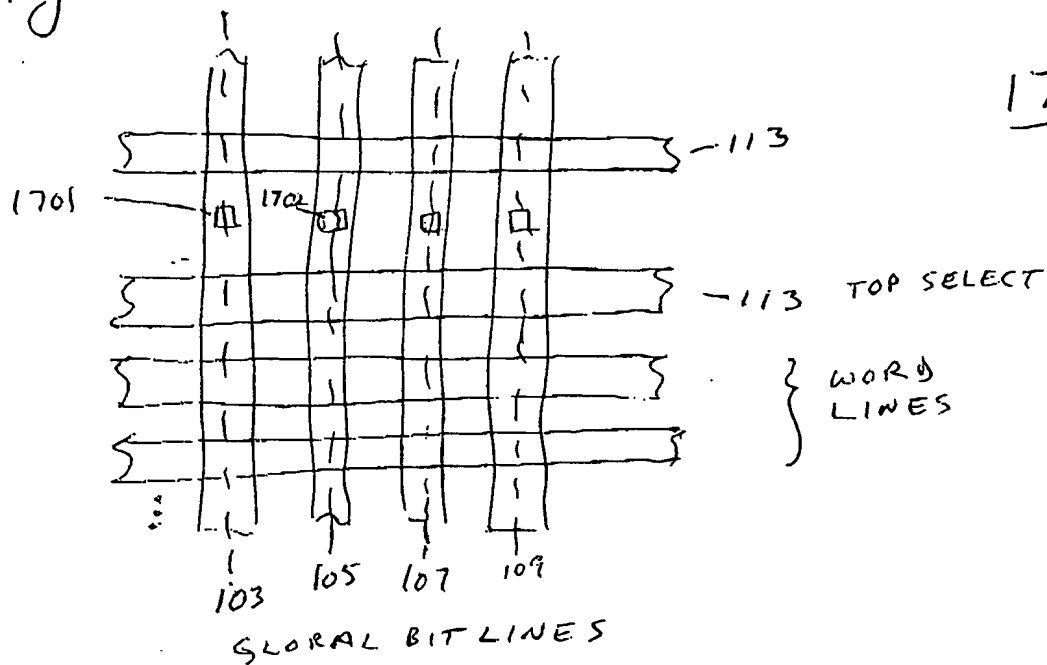 17
113
1701
1702
113 TOP SELECT
WORD
LINES
103
105
107
109
GLOBAL BIT LINES